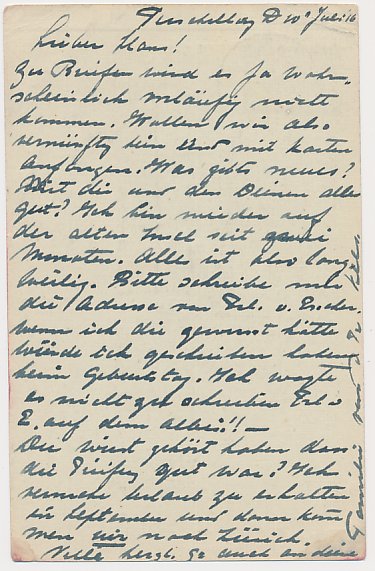 Terschelling D 10ⁿ Juli 16
Lieber Hans!
Zu Briefen wird es ja wahr-
scheinlich vorläufig nicht
kommen. Wollen wir also
vernünftig sein und mit Karten
anfangen. Was gibts neues?
Mit dir und den Deinen alles
gut? Ich bin wieder auf
der alten Insel seit zwei
Monaten. Alles ist also lang-
weilig. Bitte schreibe mir
die Adresse von Frl. v.
wenn ich die gewusst hätte
würde ich geschrieben haben
beim Geburtstag. Ich wagte
es nicht zu schreiben Frl v
E. auf dem
Du wirst gehört haben dass
die Prüfung gut war? Ich
vermute Urlaub zu erhalten
im September und dann kom
men wir nach Zürich.
Viele herzl. auch an deine
Familie von